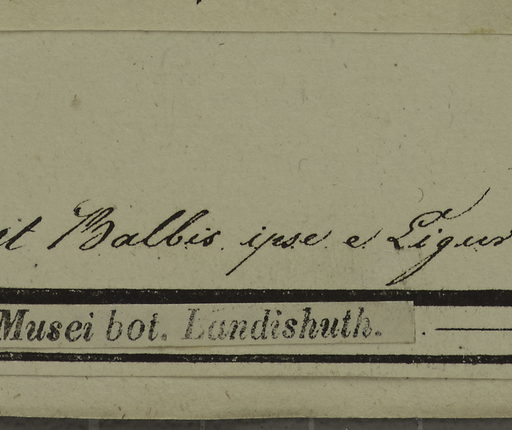 it Balbis ipse e Ligur
Musei bot. Landishuth.